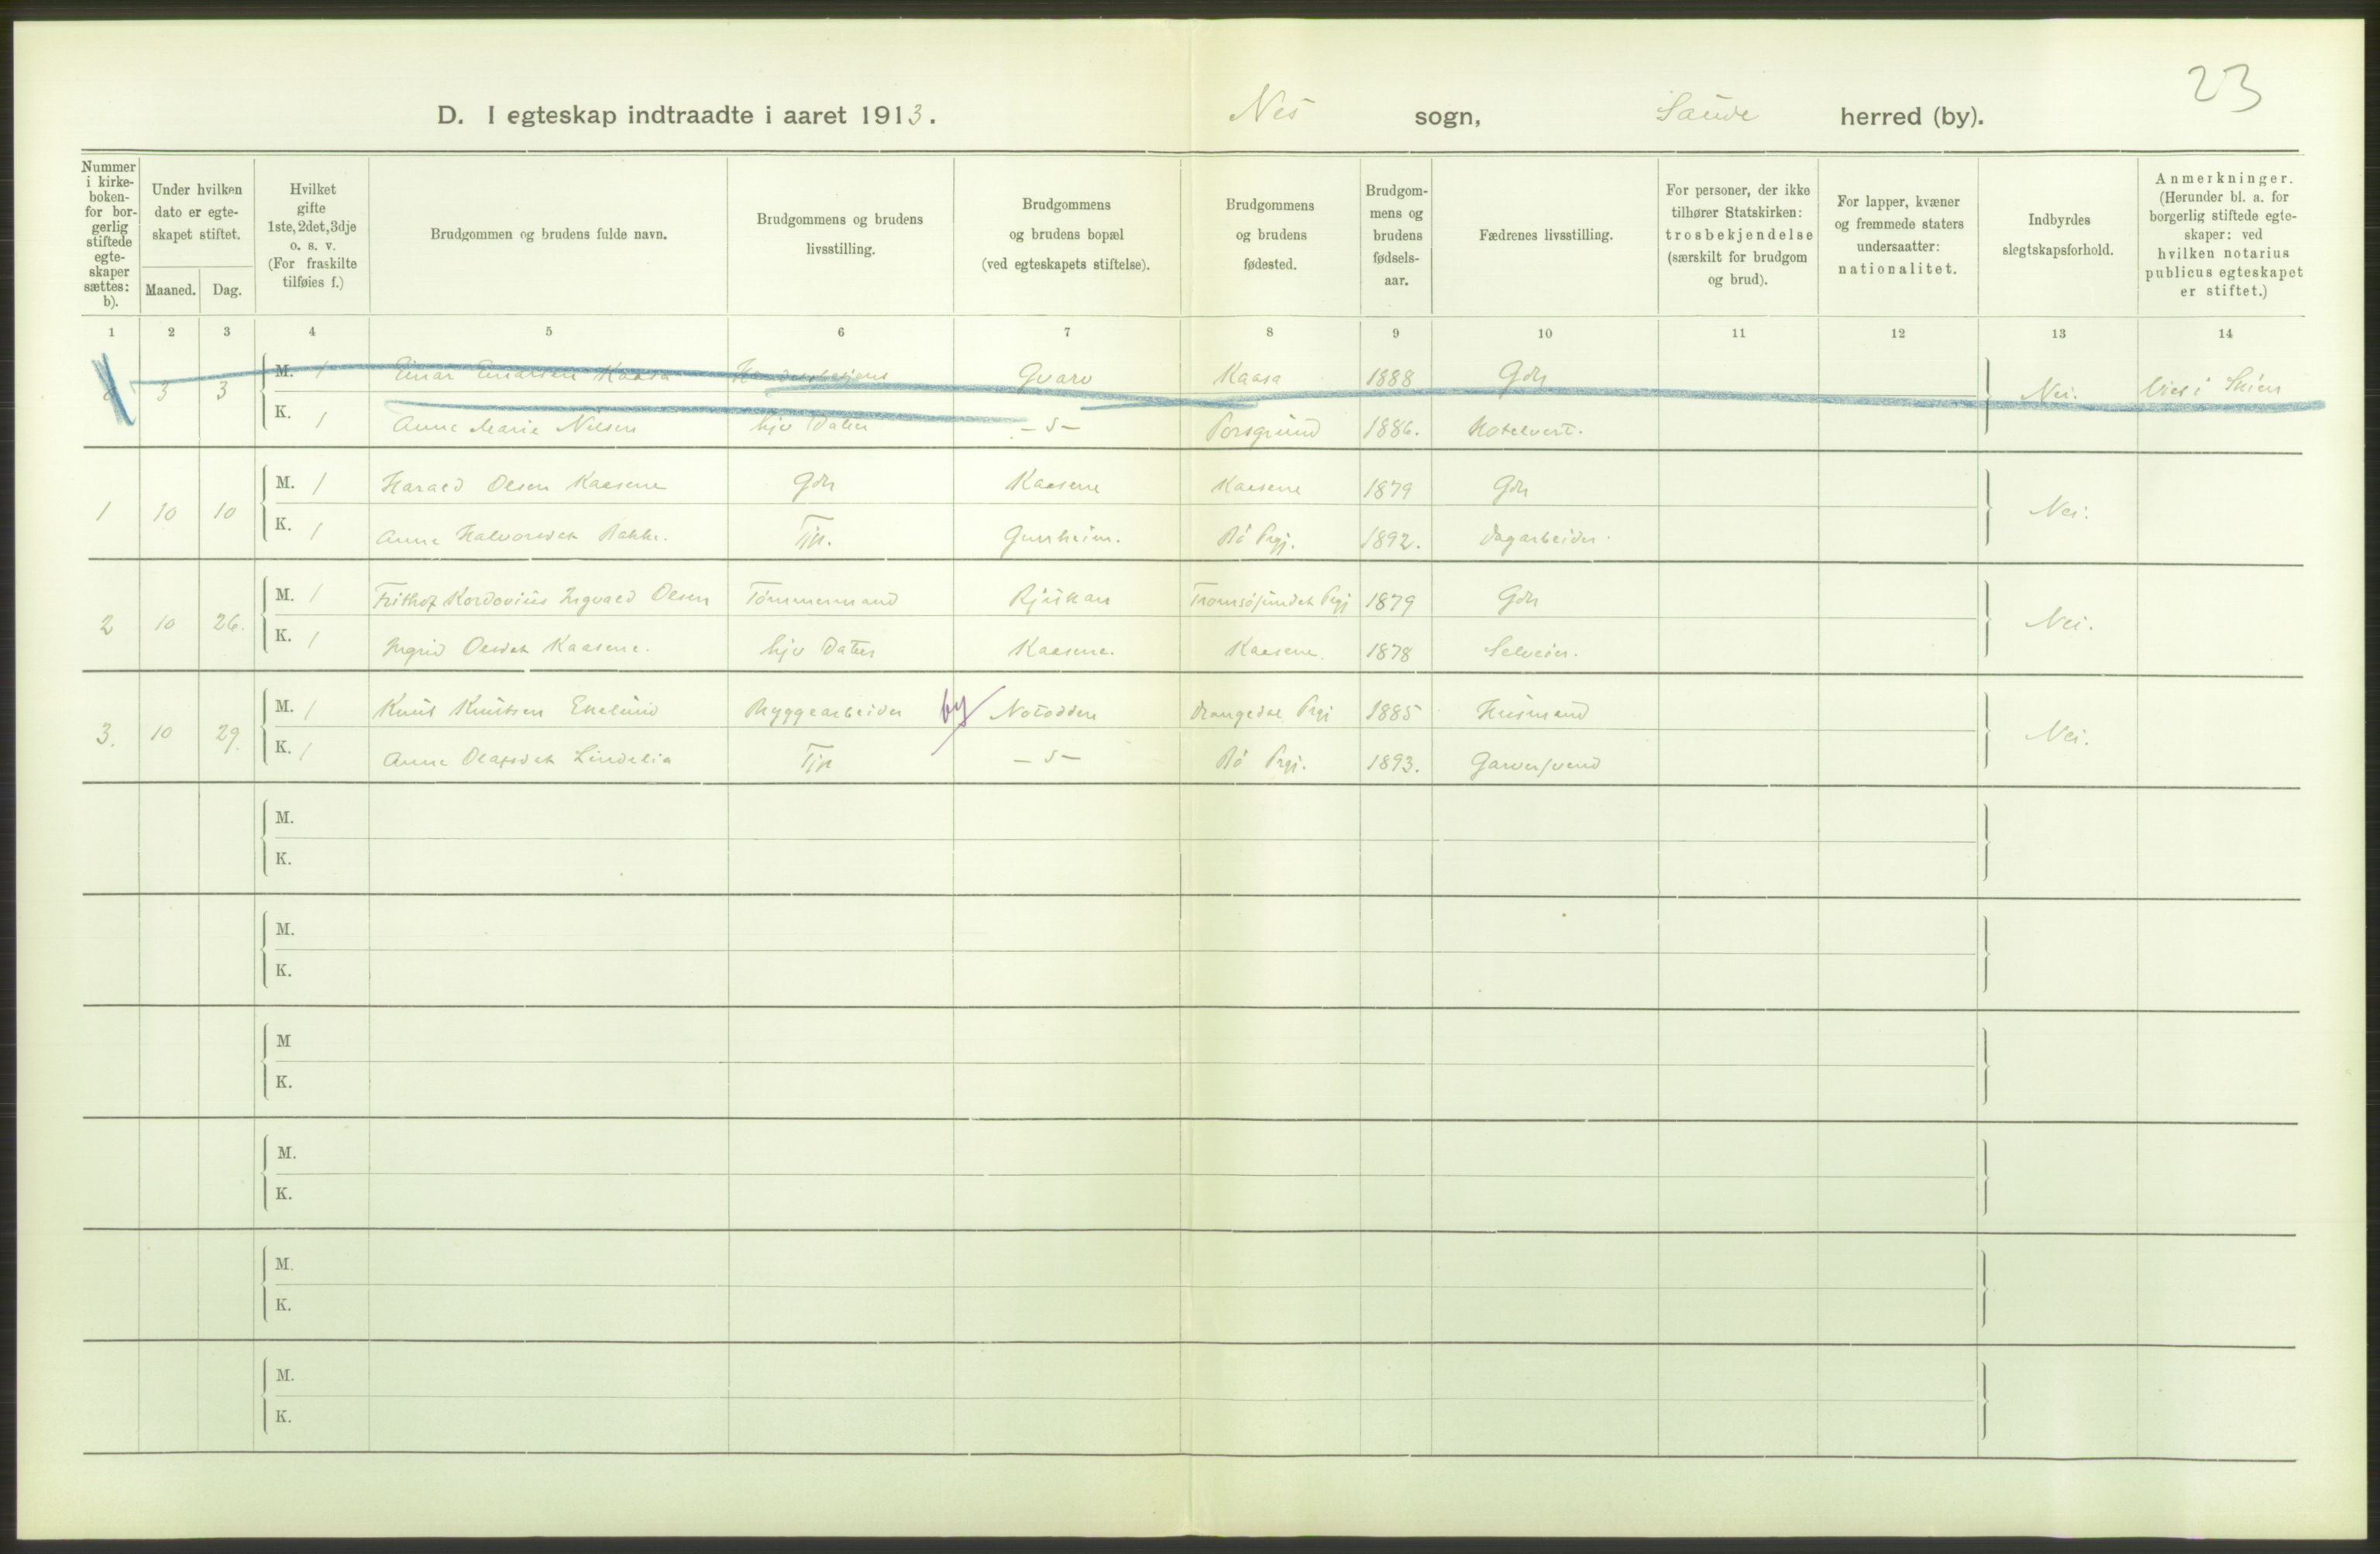 23
D. I egteskap indtraadte i aaret 1913. Nes sogn, Saude herred (by).
Nummer i kirke-boken- for bor-gerlig stiftede egte-skaper sættes: b).
Under hvilken dato er egte-skapet stiftet.
Maaned. Dag.
Hvilket gifte 1ste, 2det, 3dje o. s. v. (For fraskilte tilføies f.)
Brudgommen og brudens fulde navn.
Brudgommens og brudens livsstilling.
Brudgommens og brudens bopæl (ved egteskapets stiftelse).
Brudgommens og brudens fødested.
Brudgom-mens og brudens fødsels-aar.
Fædrenes livsstilling.
For personer, der ikke tilhører Statskirken: trosbekjendelse (særskilt for brudgom og brud).
For lapper, kvæner og fremmede staters undersaatter: nationalitet.
Indbyrdes slegtskapsforhold.
Anmerkninger. (Herunder bl. a. for borgerlig stiftede egte-skaper: ved hvilken notarius publicus egteskapet er stiftet.)
1 2 3 4 5 6 7 8 9 10 11 12 13 14
3 3 M. 1 Einar Einarsen Kaasa Gvarv Kaasa 1888 Gdr Nei. Viet i Skien
K. 1 Anne Marie Nilsen hjv Datter - s - Porsgrund 1886. Hotelvert.
1 10 10 M. 1 Harald Olsen Kaasene Gdr Kaasene Kaasene 1879 Gdr Nei.
K. 1 Anne Halvorsdat Bakke. Tjp. Gunheim. Bø Prgj. 1892. Dagarbeider.
2 10 26. M. 1 Frithof Kordovius Ingvald Olsen Tømmermand Rjukan Tromsøsundet Prgj 1879 Gdr Nei.
K. 1 Ingrid Olsdat Kaasene. hjv Datter Kaasene. Kaasene. 1878 Selveier.
3. 10 29. M. 1 Knut Knutsen Ekelund Bryggearbeider by Notodden Drangedal Prgj 1885 Husmand Nei.
K. 1 Anne Olafsdat Lindelia Tjp - s - Bø Prgj. 1893. Garversvend
M.
K.
M.
K.
M
K.
M.
K.
M.
K.
M.
K.